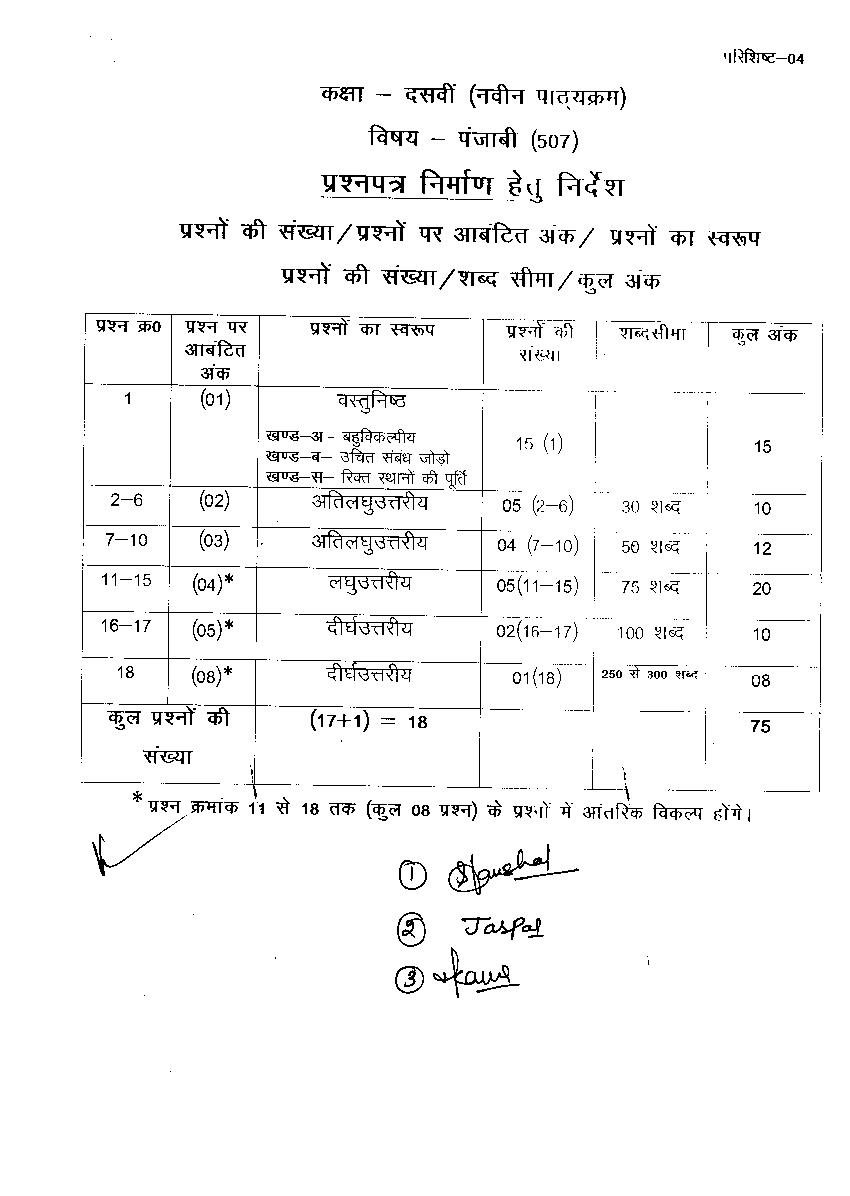 परिशिष्ट–04
कक्षा – दसवीं (नवीन पाठ्यक्रम)
विषय – पंजाबी (507)
प्रश्नपत्र निर्माण हेतु निर्देश
प्रश्नों की संख्या/प्रश्नों पर आबंटित अंक/ प्रश्नों का स्वरूप
प्रश्नों की संख्या/शब्द सीमा/कुल अंक
प्रश्न क्र0 प्रश्न पर आबंटित अंक प्रश्नों का स्वरूप प्रश्नों की संख्या शब्दसीमा कुल अंक
1 (01) वस्तुनिष्ठ
खण्ड–अ - बहुविकल्पीय
खण्ड–ब– उचित संबंध जोड़ो
खण्ड–स– रिक्त स्थानों की पूर्ति
15 (1) 15
2–6 (02) अतिलघुउत्तरीय 05 (2–6) 30 शब्द 10
7–10 (03) अतिलघुउत्तरीय 04 (7–10) 50 शब्द 12
11–15 (04)* लघुउत्तरीय 05(11–15) 75 शब्द 20
16–17 (05)* दीर्घउत्तरीय 02(16–17) 100 शब्द 10
18 (08)* दीर्घउत्तरीय 01(18) 250 से 300 शब्द 08
कुल प्रश्नों की संख्या (17+1) = 18 75
* प्रश्न क्रमांक 11 से 18 तक (कुल 08 प्रश्न) के प्रश्नों में आंतरिक विकल्प होंगे।
1
2 Jaspal
3